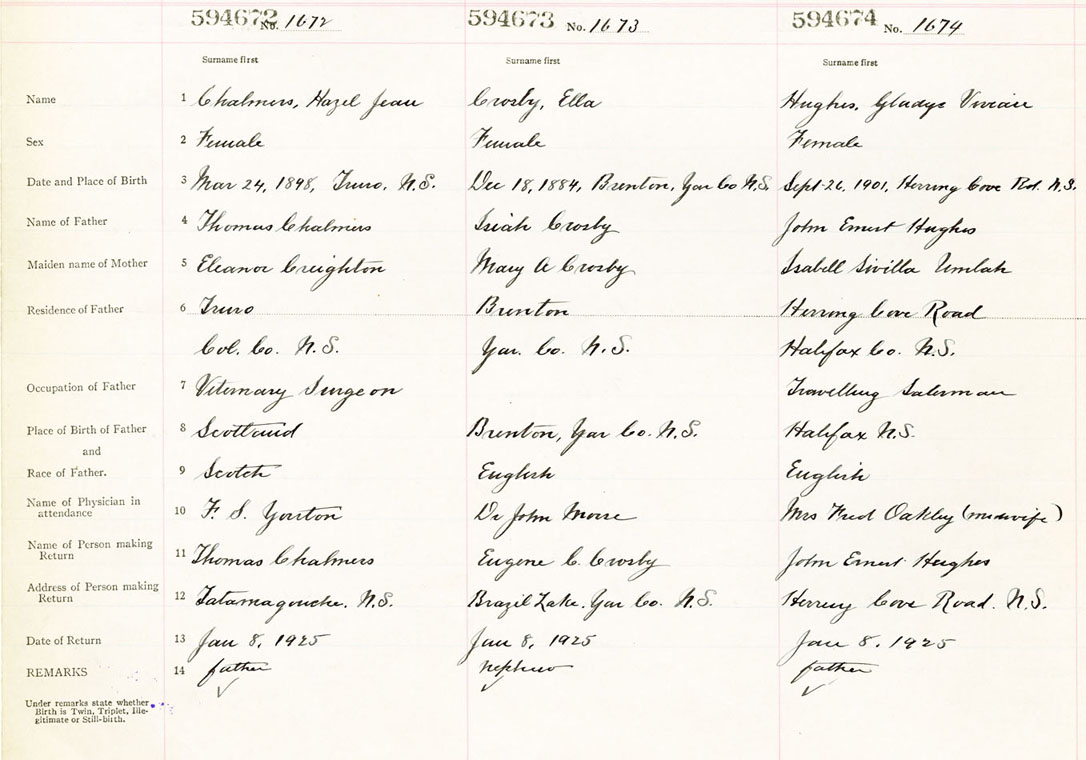 594672 No. 1672 594673 No. 1673 594674 No. 1674
Surname first Surname first Surname first
Name 1 Chalmers, Hazel Jean Crosby, Ella Hughes, Gladys Vivian
Sex 2 Female Female Female
Date and Place of Birth 3 Mar 24, 1898, Truro, N.S. Dec 18, 1884, Brenton, Yar Co N.S. Sept 26, 1901, Herring Cove Rd. N.S.
Name of Father 4 Thomas Chalmers Isiah Crosby John Ernest Hughes
Maiden name of Mother 5 Eleanor Creighton Mary A Crosby Isabell Sivilla Umlah
Residence of Father 6 Truro Brenton Herring Cove Road
Col. Co. N.S. Yar. Co. N.S. Halifax Co. N.S.
Occupation of Father 7 Veternary Surgeon Travelling Salesman
Place of Birth of Father 8 Scotland Brenton, Yar Co. N.S. Halifax N.S.
and
Race of Father. 9 Scotch English English
Name of Physician in
attendance 10 F. S. Yorston Dr John Morse Mrs Fred Oakley (midwife)
Name of Person making
Return 11 Thomas Chalmers Eugene C. Crosby John Ernest Hughes
Address of Person making
Return 12 Tatamagouche. N.S. Brazil Lake. Yar Co. N.S. Herring Cove Road. N.S.
Date of Return 13 Jan 8, 1925 Jan 8, 1925 Jan 8, 1925
REMARKS 14 father nephew father
Under remarks state whether
Birth is Twin, Triplet, Ille-
gitimate or Still-birth.